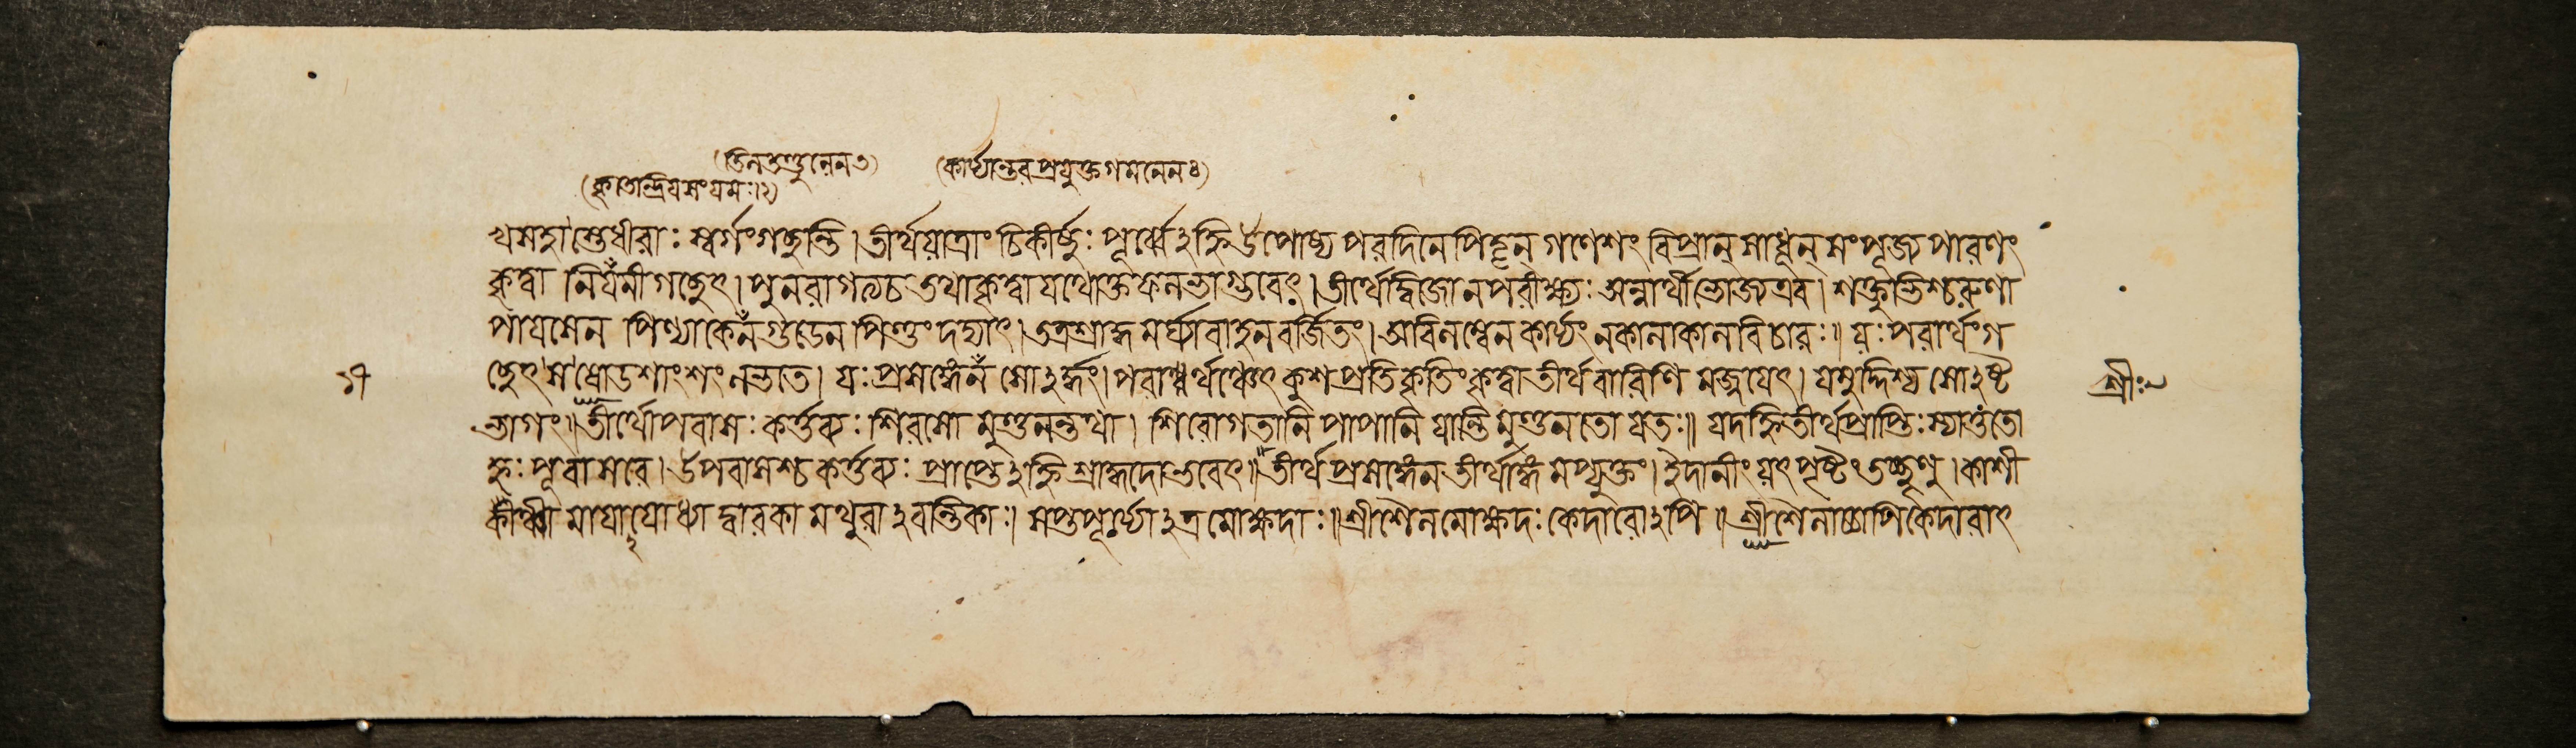 (তিলতণ্ডুলেন৩) (কার্য্যান্তরপ্রযুক্তগমনেন৪)
ইন্দ্রিয়সংযমঃ।২)
স্তেধীরাঃ স্বর্গংগচ্ছন্তি।তীর্থযাত্রাং চিকীর্ষুঃ পূর্ব্বেঽহ্নিউপোষ্য পরদিনে পিতৄন্ গণেশং বিপ্রান্ সাধূন্ সংপূজ্য পারণং
কৃত্বা নিয়মী গচ্ছেৎ। পুনরাগত্যচ তথাকৃত্বা যথোক্তফলভাগ্ভবেৎ।তীর্থেদ্বিজোনপরীক্ষ্যঃ অন্নার্থীভোজ্যএব। শক্তুভিশ্চরুণা
পায়সেন পিণ্যাকেন গুডেন পিণ্ডং দদ্যাৎ।তত্রশ্রাদ্ধমর্ঘ্যাবাহনবর্জিতং।অবিলম্বেন কার্য্যং নকালাকালবিচারঃ॥ যঃ পরার্থং গ
চ্ছেৎ স ষোডশাংশং লভতে। যঃ প্রসঙ্গেন সোঽর্দ্ধং। কুশপ্রতিকৃতিং কৃত্বা তীর্থবারিণি মজ্জয়েৎ। যমুদ্দিশ্য সোঽষ্ট
ভাগং॥ তীর্থোপবাসঃ কর্ত্তব্যঃ শিরসো মুণ্ডনন্তথা। শিরোগতানি পাপানি যান্তি মুণ্ডনতো যতঃ॥ যদহ্নি তীর্থপ্রাপ্তিঃ স্যাত্ততো
হ্নঃ পূর্ববাসরে। উপবাসশ্চ কর্ত্তব্যঃ প্রাপ্তেঽহ্নি শ্রাদ্ধদোভবেৎ॥ তীর্থপ্রসঙ্গেন তীর্থাঙ্গমপ্যুক্তং।ইদানীং যৎ পৃষ্টং তচ্ছৃণু। কাশী
কাঞ্চী মায়াঽযোধ্যা দ্বারকা মথুরাঽবন্তিকাঃ। সপ্তপুর্য্যোঽত্র মোক্ষদাঃ॥ শ্রীশৈলমোক্ষদঃ কেদারোঽপি॥ শ্রীশৈলাচ্চাপিকেদারাৎ
শ্রীঃ